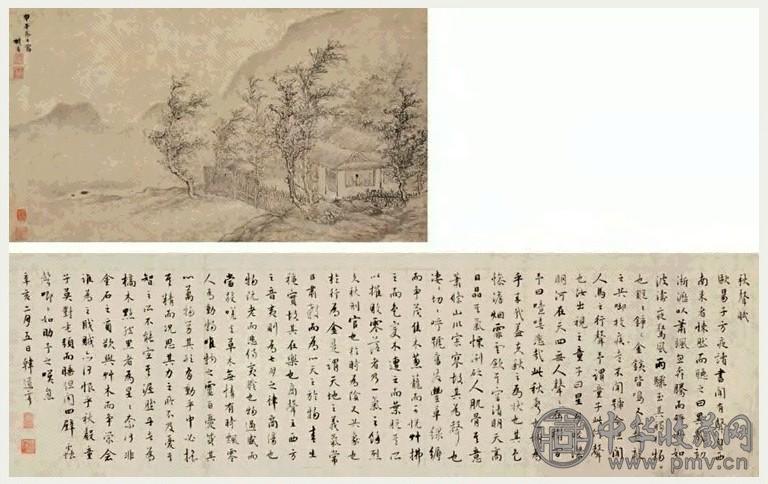 甲午冬日寫
秋聲賦
歐陽子方夜讀書聞有聲自西
南來者悚然而聽之曰異哉初
淅瀝以蕭颯忽奔騰而砰湃如
波濤夜驚風雨驟至其觸於物
也鏦鏦錚錚金鐵皆鳴又如赴敵
之兵銜枚疾走不聞號令但聞
人馬之行聲予謂童子此何聲
也汝出視之童子曰星月
明河在天四無人聲聲在
予曰噫嘻悲哉此秋聲也胡為
乎來哉蓋夫秋之為狀也其色
慘淡煙霏雲斂其容清明天高
日晶其氣慄冽砭人肌骨其意
蕭條山川寂寥故其為聲也
淒淒切切呼號奮發豐草綠縟
而爭茂佳木蔥蘢而可悅草拂
之而色變木遭之而葉脫其所
以摧敗零落者乃一氣之餘烈
夫秋刑官也於時為陰又兵象也
於行為金是謂天地之義氣常
以肅殺而為心天之於物春生
秋實故其在樂也商聲主西方
之音夷則為七月之律商傷也
物既老而悲傷夷戮也物過盛而
當殺嗟夫草木無情有時飄零
人為動物唯物之靈百憂感其
心萬物勞其形有動乎中必搖
其精而況思其力之所不及憂其
智之所不能宜其渥然丹者為
槁木黟然黑者為星星奈何非
金石之質欲與草木而爭榮念
誰為之戕賊亦何恨乎秋聲童
子莫對垂頭而睡但聞四壁蟲
聲唧唧如助予之嘆息
辛亥二月五日韓逢
中华收藏网
www.pmv.cn